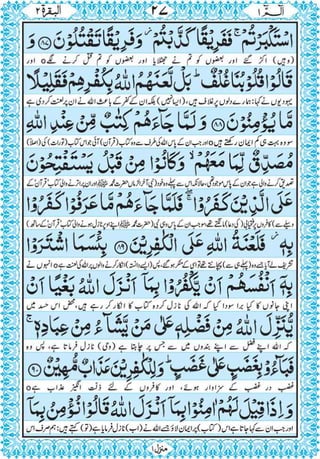 البقرة ٢ ٢٧ الٓمّٓ ١
اسْتَكْبَرْتُمْ ۚ فَفَرِيْقًا كَذَّبْتُمْ ۫ وَفَرِيْقًا تَقْتُلُوْنَ ۝۸۷ وَ
(وہیں) اکڑ گئے اور بعضوں کو تم نے جھٹلایا اور بعضوں کو تم قتل کرنے لگے ۝ اور
قَالُوْا قُلُوْبُنَا غُلْفٌ ؕ بَلْ لَّعَنَهُمُ اللّٰهُ بِكُفْرِهِمْ فَقَلِيْلًا
یہودیوں نے کہا: ہمارے دلوں پر غلاف ہیں، (ایسا نہیں) بلکہ ان کے کفر کے باعث اللہ نے ان پر لعنت کر دی ہے
مَّا يُؤْمِنُوْنَ ۝۸۸ وَلَمَّا جَآءَهُمْ كِتٰبٌ مِّنْ عِنْدِ اللّٰهِ
سو وہ بہت ہی کم ایمان رکھتے ہیں ۝ اور جب ان کے پاس اللہ کی طرف سے وہ کتاب (قرآن) آئی جو اس کتاب (تورات) کی (اصلاً)
مُصَدِّقٌ لِّمَا مَعَهُمْ ۙ وَكَانُوْا مِنْ قَبْلُ يَسْتَفْتِحُوْنَ
تصدیق کرنے والی ہے جو ان کے پاس موجود تھی، حالانکہ اس سے پہلے وہ خود (نبی آخر الزماں حضرت محمد ﷺ اور ان پر اترنے والی کتاب قرآن کے
عَلَى الَّذِيْنَ كَفَرُوْا ۚ فَلَمَّا جَآءَهُمْ مَّا عَرَفُوْا كَفَرُوْا
وسیلے سے) کافروں پر فتح یابی (کی دعا) مانگتے تھے، سو جب ان کے پاس وہی نبی (حضرت محمد ﷺ اپنے اوپر نازل ہونے والی کتاب قرآن کے ساتھ)
بِهٖ ۫ فَلَعْنَةُ اللّٰهِ عَلَى الْكٰفِرِيْنَ ۝۸۹ بِئْسَمَا اشْتَرَوْا
تشریف لے آیا جسے وہ (پہلے ہی سے) پہچانتے تھے تو اسی کے منکر ہو گئے، پس (ایسے دانستہ) انکار کرنے والوں پر اللہ کی لعنت ہے ۝ انہوں نے
بِهٖۤ اَنْفُسَهُمْ اَنْ يَّكْفُرُوْا بِمَاۤ اَنْزَلَ اللّٰهُ بَغْيًا اَنْ
اپنی جانوں کا کیا برا سودا کیا کہ اللہ کی نازل کردہ کتاب کا انکار کر رہے ہیں، محض اس حسد میں
يُّنَزِّلَ اللّٰهُ مِنْ فَضْلِهٖ عَلٰى مَنْ يَّشَآءُ مِنْ عِبَادِهٖ ۚ
کہ اللہ اپنے فضل سے اپنے بندوں میں سے جس پر چاہتا ہے (وحی) نازل فرماتا ہے، پس وہ
فَبَآءُوْ بِغَضَبٍ عَلٰى غَضَبٍ ؕ وَلِلْكٰفِرِيْنَ عَذَابٌ مُّهِيْنٌ ۝۹۰
غضب در غضب کے سزاوار ہوئے، اور کافروں کے لئے ذلت انگیز عذاب ہے ۝
وَاِذَا قِيْلَ لَهُمْ اٰمِنُوْا بِمَاۤ اَنْزَلَ اللّٰهُ قَالُوْا نُؤْمِنُ بِمَاۤ
اور جب ان سے کہا جاتا ہے: اس (کتاب) پر ایمان لاؤ جسے اللہ نے (اب) نازل فرمایا ہے، (تو) کہتے ہیں: ہم صرف اس
منزل ١